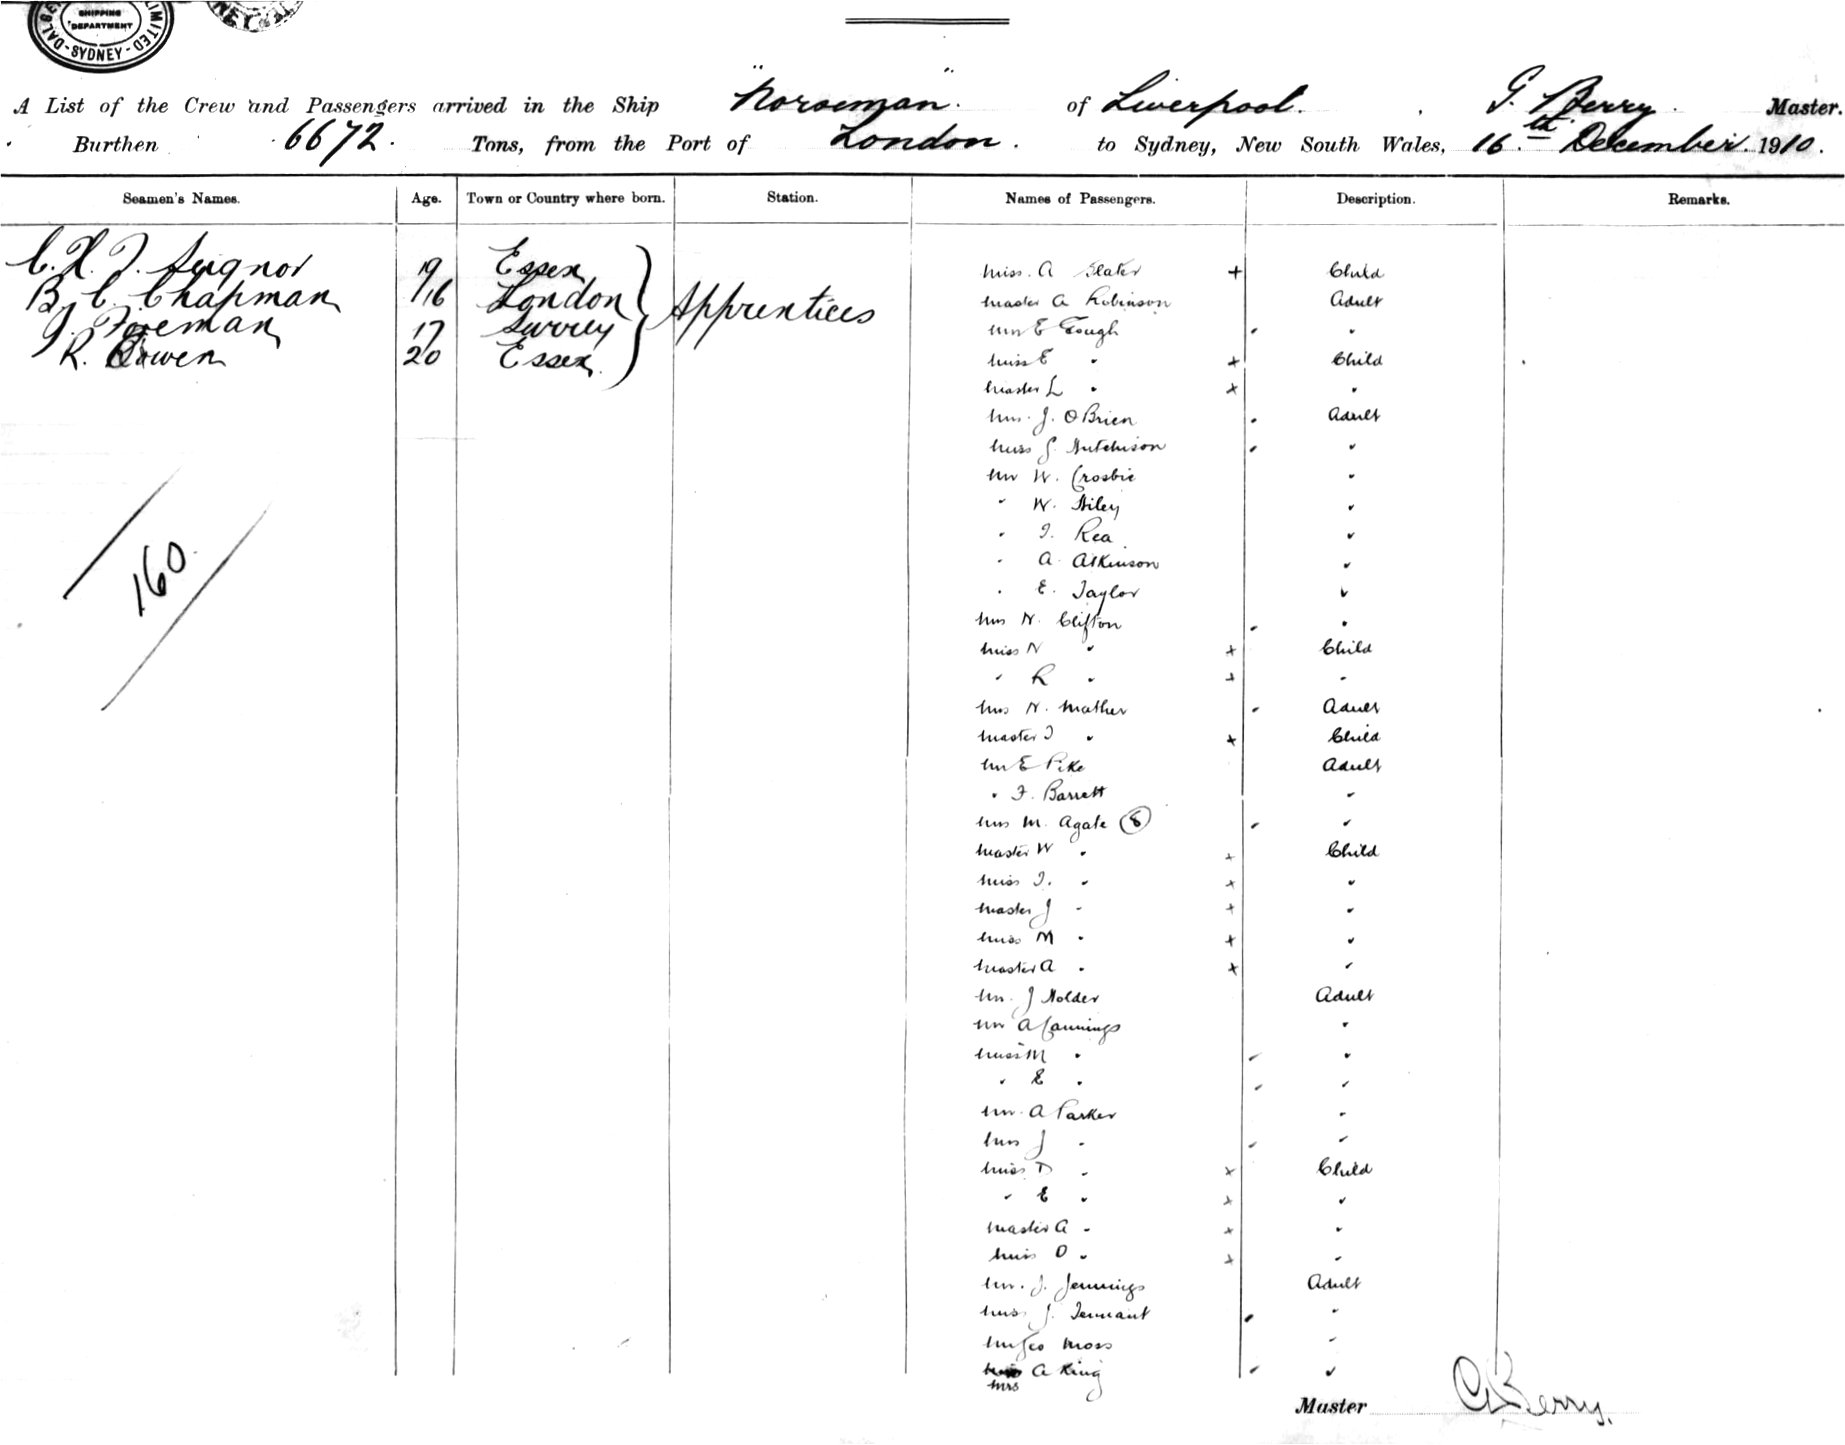 SHIPPING
DEPARTMENT
LIMITED
SYDNEY
A List of the Crew and Passengers arrived in the Ship "Norseman" of Liverpool. G. Berry Master.
Burthen 6672 Tons, from the Port of London. to Sydney, New South Wales, 16th December 1910.
Seamen's Names. Age. Town or Country where born. Station. Names of Passengers. Description. Remarks.
19 Essex
B. C. Chapman 16 London
J. Foreman 17 Surrey
R. Bowen 20 Essex
Apprentices
160
Miss. A Slater + Child
Master A Robinson Adult
E Gough "
Miss E " + Child
Master L " + "
J. O'Brien Adult
Miss G. Hutchison "
Mr W. Crosbie "
" W. Hiley "
" J. Rea "
" A. Atkinson "
" E. Taylor "
Mrs N. Clifton "
Miss N " + Child
" R " + "
Mrs N. Mather Adult
Master J " + Child
Mr E Pike Adult
" F. Barrett "
Mrs M. Agate (8) "
Master W " + Child
Miss I. " + "
Master J " + "
Miss M " + "
Master A " + "
Mr. J Holder Adult
Mr A Cannings "
Miss M " "
" E " "
Mr. A Parker "
Mrs J " "
Miss D " + Child
" E " + "
Master A " + "
Miss O " + "
Mr. J. Jennings Adult
Miss J. Tennant "
Mr Geo Moss "
Mrs A King "
Master G Berry.